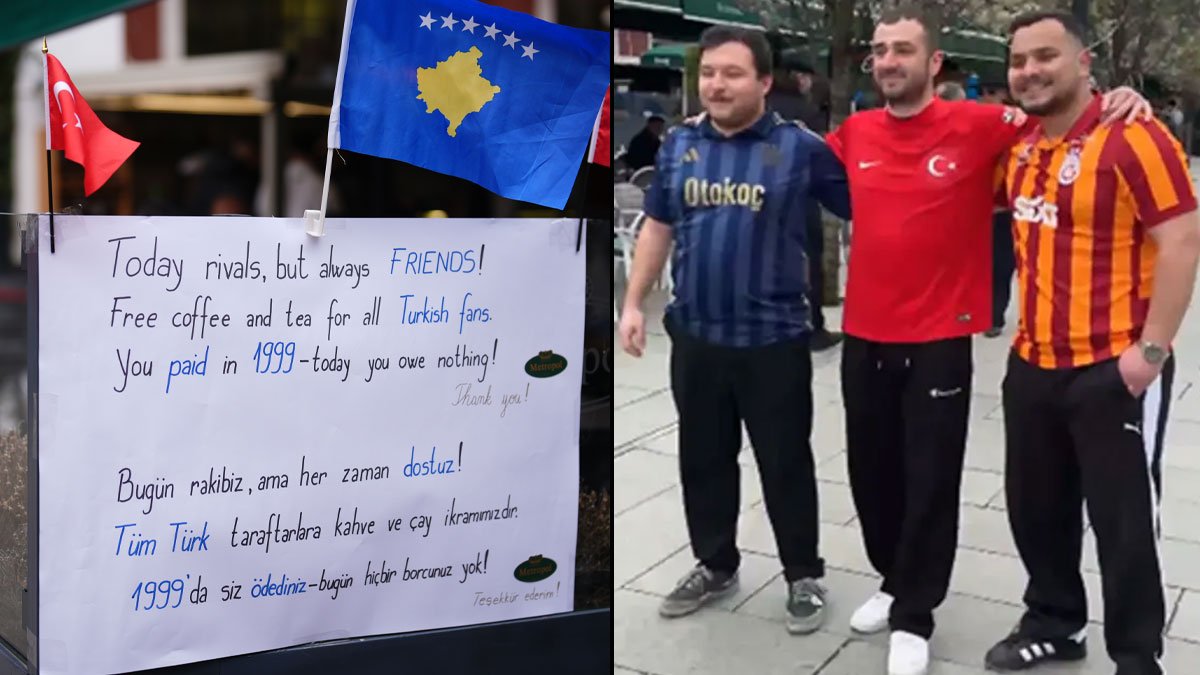 Today rivals, but always FRIENDS!
Free coffee and tea for all Turkish fans.
You paid in 1999 - today you owe nothing!
Metropol
Thank you!
Bugün rakibiz, ama her zaman dostuz!
Tüm Türk taraftarlara kahve ve çay ikramımızdır.
1999'da siz ödediniz - bugün hiçbir borcunuz yok!
Metropol
Teşekkür ederim!
Otokoç
SIXT
Champion